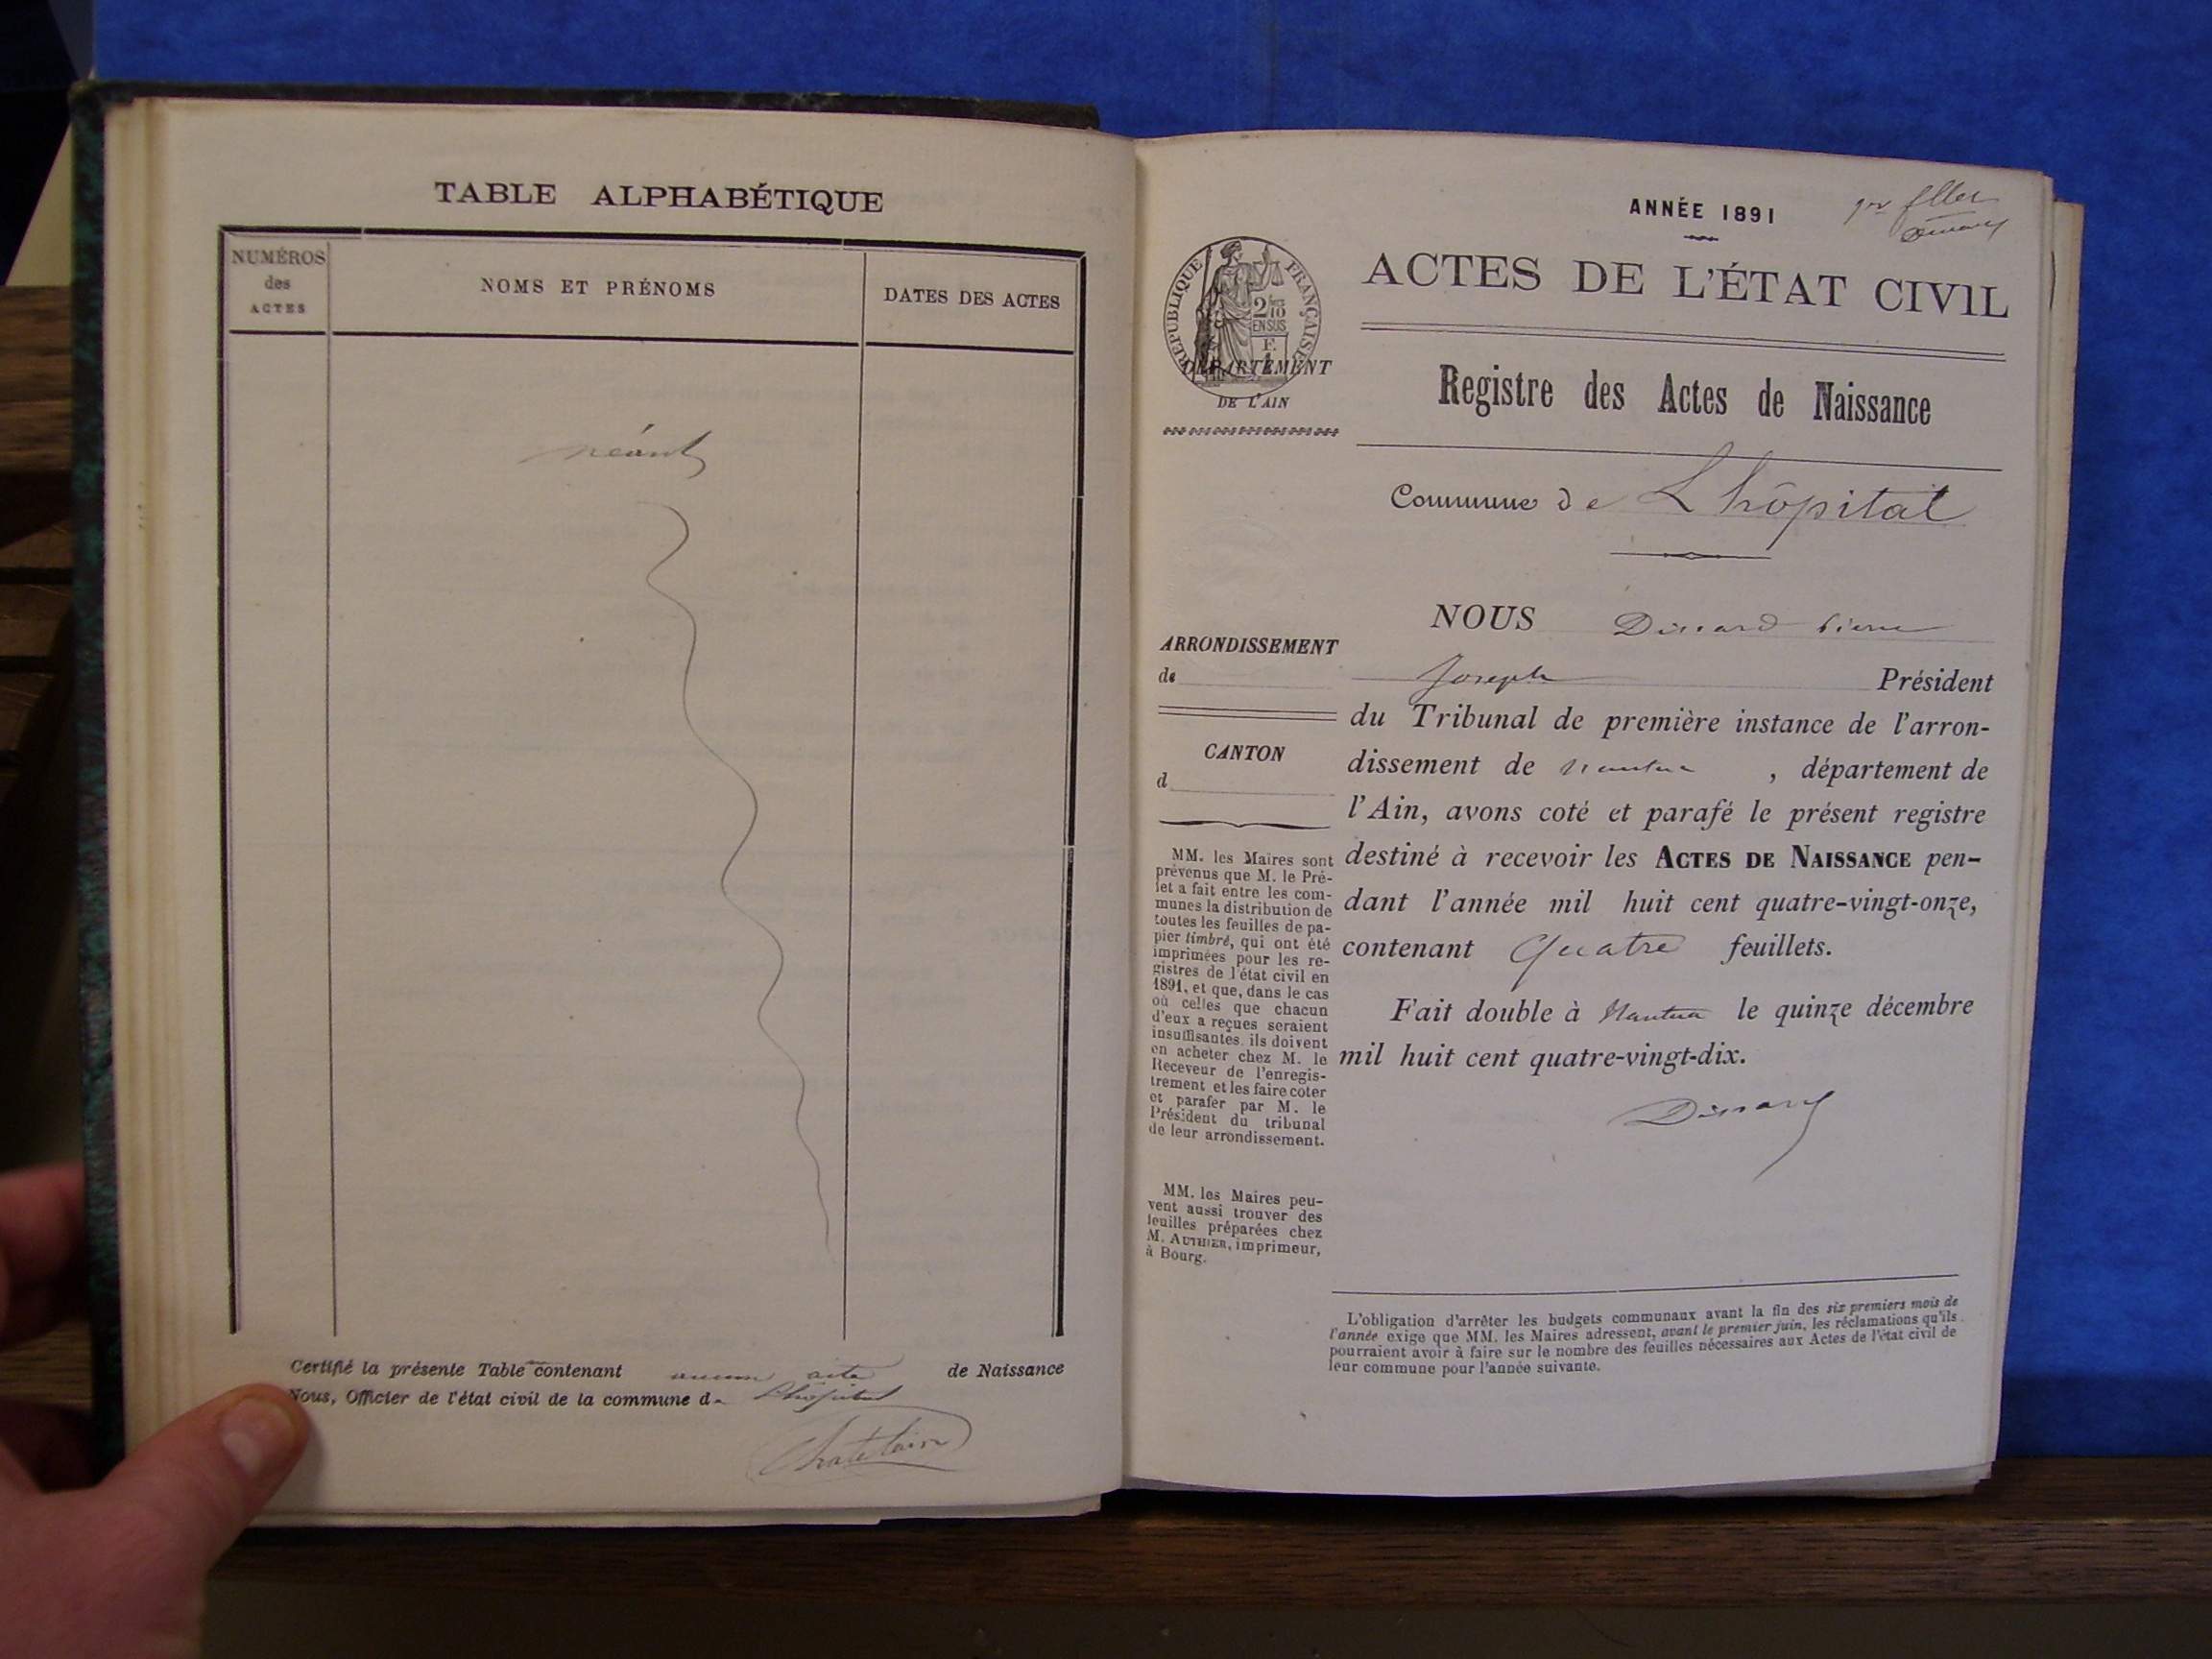 TABLE ALPHABÉTIQUE
NUMÉROS
des
ACTES
NOMS ET PRÉNOMS
DATES DES ACTES
néant
Certifié la présente Table contenant aucun acte de Naissance
Nous, Officier de l'état civil de la commune de Lhôpital
Chatelain
ANNÉE 1891
1er
ACTES DE L'ÉTAT CIVIL
RÉPUBLIQUE FRANÇAISE
2/10
EN SUS
F.
DÉPARTEMENT
DE L'AIN
Registre des Actes de Naissance
Commune de Lhôpital
ARRONDISSEMENT
de
CANTON
d
MM. les Maires sont
prévenus que M. le Pré-
fet a fait entre les com-
munes la distribution de
toutes les feuilles de pa-
pier timbré, qui ont été
imprimées pour les re-
gistres de l'état civil en
1891, et que, dans le cas
où celles que chacun
d'eux a reçues seraient
insuffisantes, ils doivent
en acheter chez M. le
Receveur de l'enregis-
trement et les faire coter
et parafer par M. le
Président du tribunal
de leur arrondissement.
MM. les Maires peu-
vent aussi trouver des
feuilles préparées chez
M. AUTHIER, imprimeur,
à Bourg.
NOUS Pierre
Joseph Président
du Tribunal de première instance de l'arron-
dissement de Nantua , département de
l'Ain, avons coté et parafé le présent registre
destiné à recevoir les ACTES DE NAISSANCE pen-
dant l'année mil huit cent quatre-vingt-onze,
contenant Quatre feuillets.
Fait double à Nantua le quinze décembre
mil huit cent quatre-vingt-dix.
L'obligation d'arrêter les budgets communaux avant la fin des six premiers mois de
l'année exige que MM. les Maires adressent, avant le premier juin, les réclamations qu'ils
pourraient avoir à faire sur le nombre des feuilles nécessaires aux Actes de l'état civil de
leur commune pour l'année suivante.